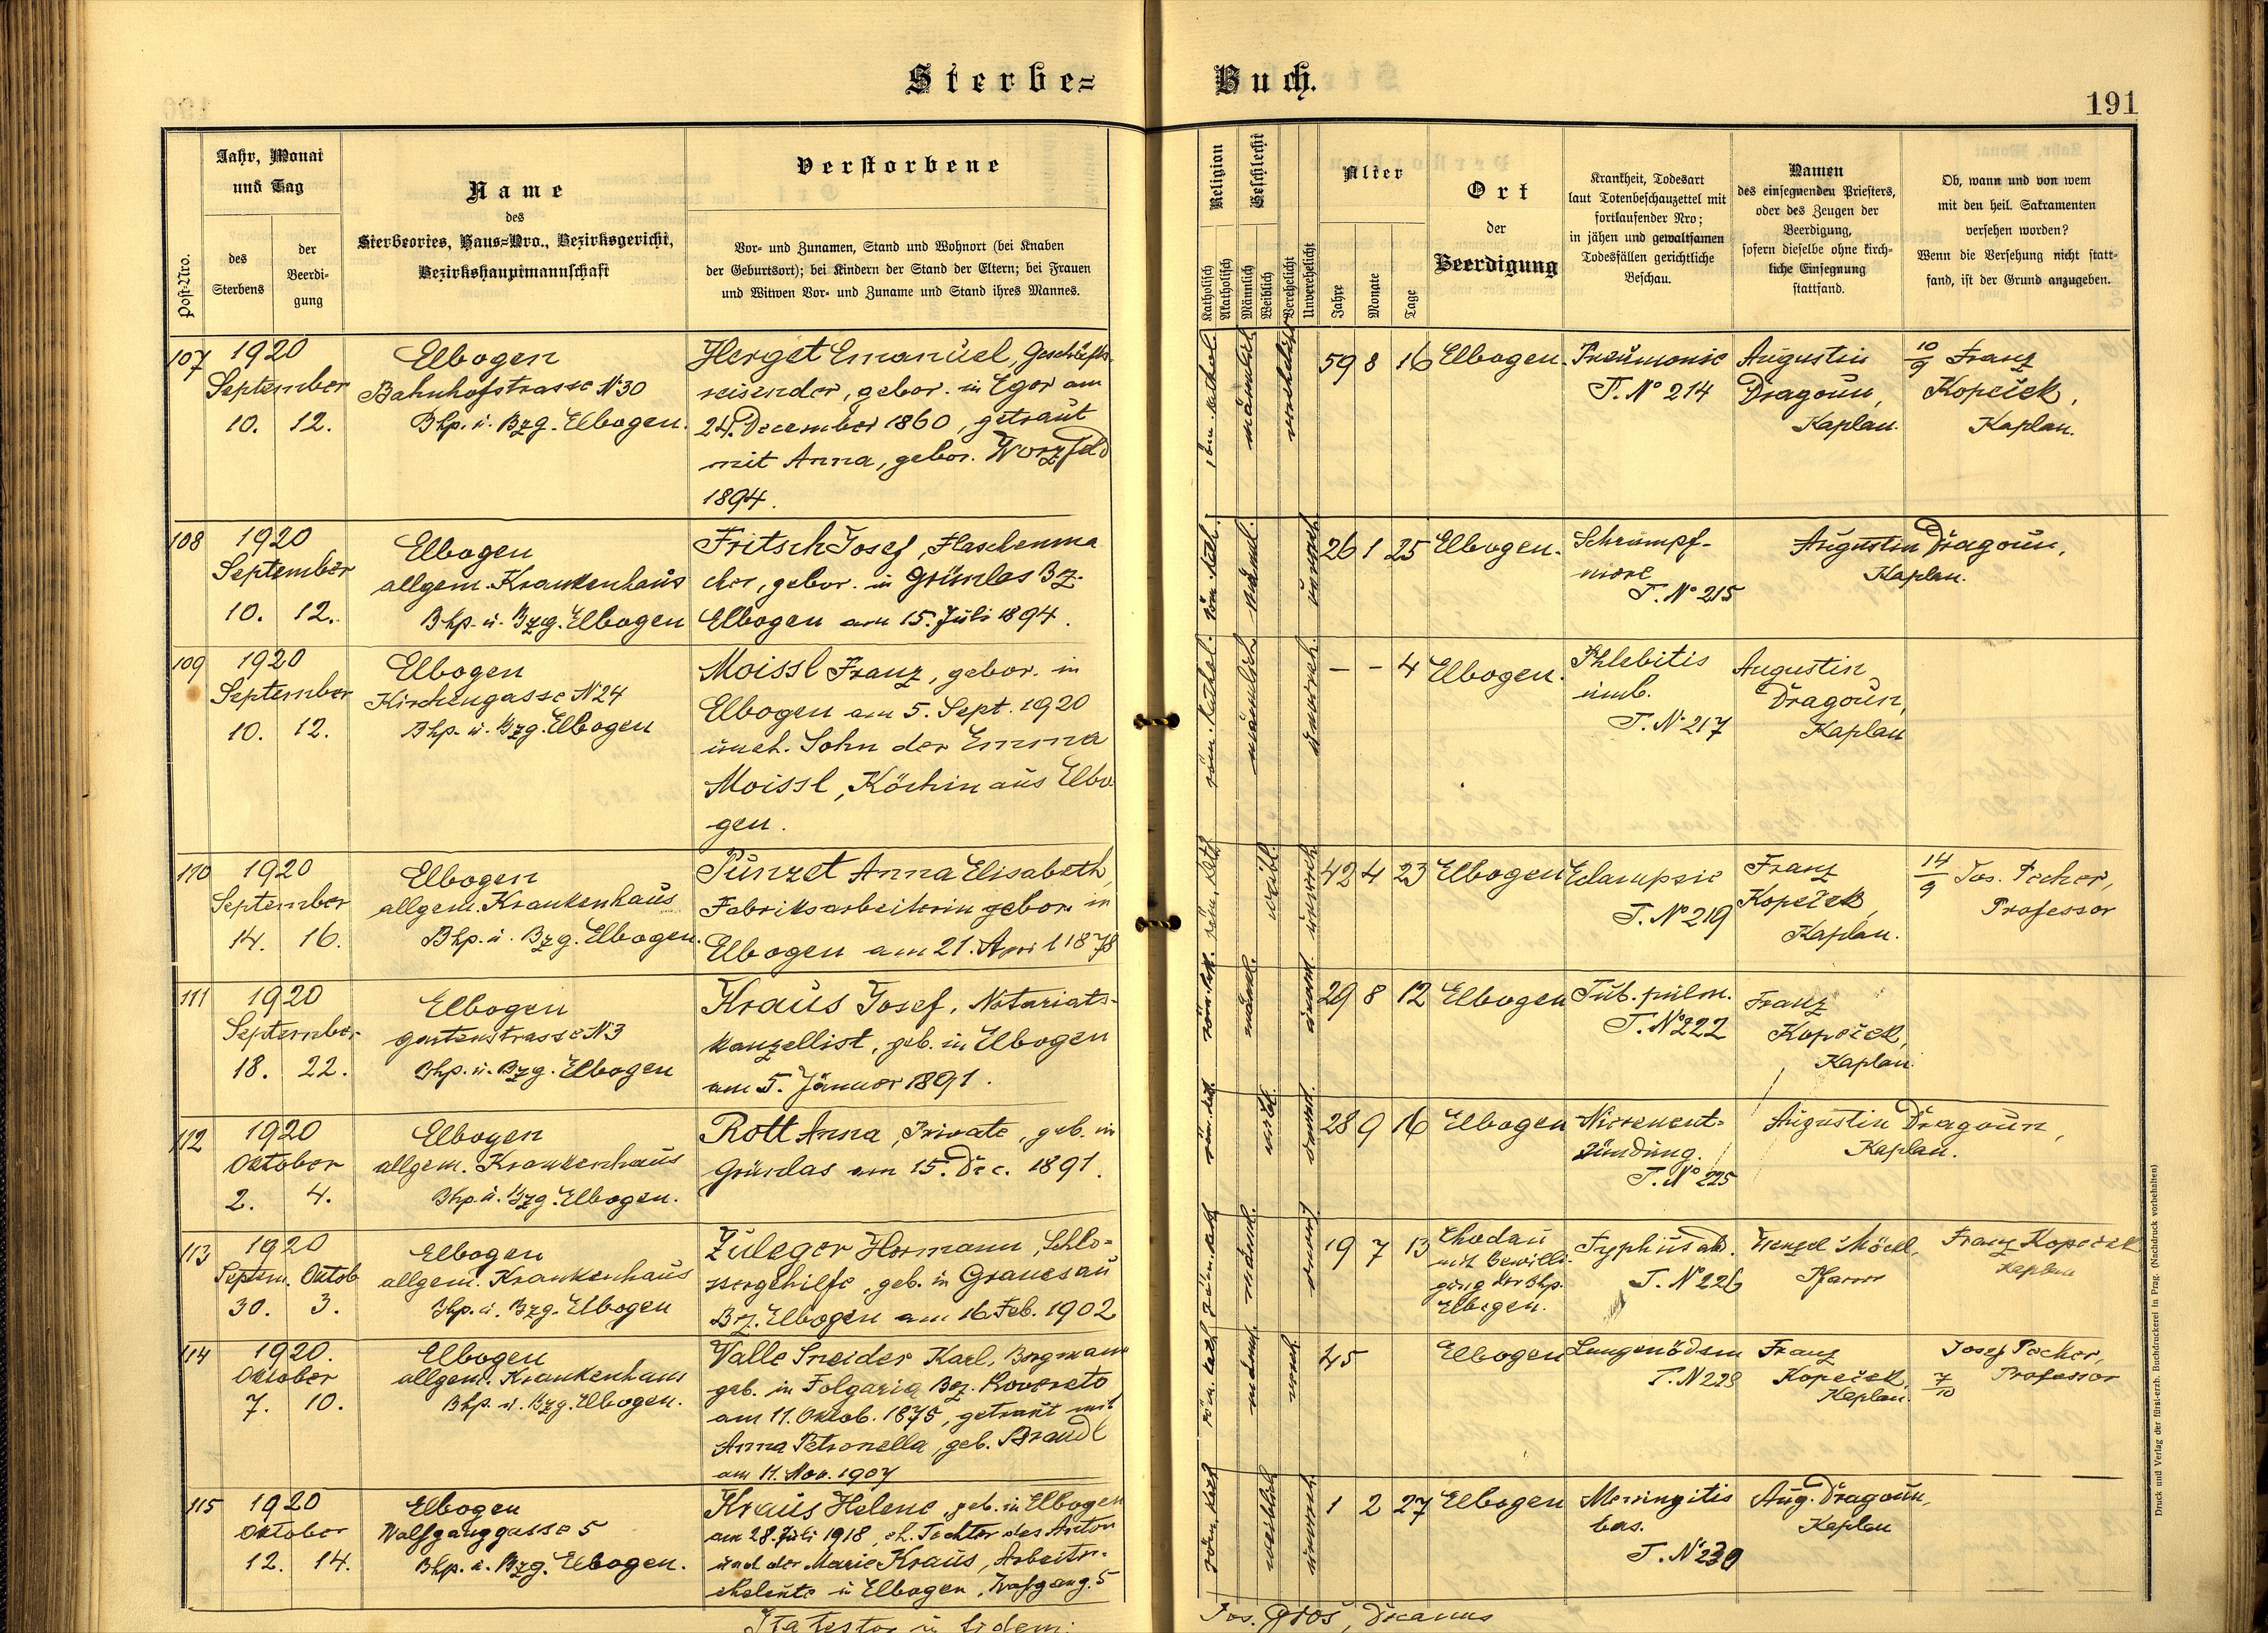 Sterbe-
Buch.
191
Post-Nro.
Jahr, Monat
und Tag
des
Sterbens
der
Beerdi-
gung
Name
des
Sterbeortes, Haus-Nro., Bezirksgericht,
Bezirkshauptmannschaft
Verstorbene
Vor- und Zunamen, Stand und Wohnort (bei Knaben
der Geburtsort); bei Kindern der Stand der Eltern; bei Frauen
und Witwen Vor- und Zuname und Stand ihres Mannes.
Religion
Katholisch
Akatholisch
Geschlecht
Männlich
Weiblich
Verehelicht
Unverehelicht
Alter
Jahre
Monate
Tage
Ort
der
Beerdigung
Krankheit, Todesart
laut Totenbeschauzettel mit
fortlaufender Nro;
in jähen und gewaltsamen
Todesfällen gerichtliche
Beschau.
Namen
des einsegnenden Priesters,
oder des Zeugen der
Beerdigung,
sofern dieselbe ohne kirch-
liche Einsegnung
stattfand.
Ob, wann und von wem
mit den heil. Sakramenten
versehen worden?
Wenn die Versehung nicht statt-
fand, ist der Grund anzugeben.
107
1920
September
10. 12.
Elbogen
Bahnhofstrasse № 30
Bhp. u. Bzg. Elbogen.
Herget Emanuel, Geschäfts-
reisender, gebor. in Eger am
24. December 1860, getraut
mit Anna, gebor. Worzfeld
1894.
röm. kathol.
männlich
verehelicht
59 8 16
Elbogen.
Pneumonie
T. № 214
Augustin
Dragoun,
Kaplan.
10/9 Franz
Kopeček,
Kaplan.
108
1920
September
10. 12.
Elbogen
allgem. Krankenhaus
Bhp. u. Bzg. Elbogen
Fritsch Josef, Flaschenma
cher, gebor. in Grünlas Bz.
Elbogen am 15. Juli 1894.
röm. kath.
männl.
unverh.
26 1 25
Elbogen.
Schrumpf-
niere
T. № 215
Augustin Dragoun,
Kaplan.
109
1920
September
10. 12.
Elbogen
Kirchengasse № 24
Bhp. u. Bzg. Elbogen
Moissl Franz, gebor. in
Elbogen am 5. Sept. 1920
uneh. Sohn der Emma
Moissl, Köchin aus Elbo-
gen.
röm. kathol.
männlich
unverh.
– – 4
Elbogen.
Phlebitis
umb.
T. № 217
Augustin
Dragoun,
Kaplan
110
1920
September
14. 16.
Elbogen
allgem. Krankenhaus
Bhp. u. Bzg. Elbogen.
Punzet Anna Elisabeth,
Fabriksarbeiterin gebor. in
Elbogen am 21. April 1878
röm. kath.
weibl.
unverh.
42 4 23
Elbogen
Eclampsie
T. № 219
Franz
Kopeček,
Kaplan.
14/9 Jos. Pecher,
Professor
111
1920
September
18. 22.
Elbogen
gartenstrasse № 3
Bhp. u. Bzg. Elbogen
Kraus Josef, Notariats-
kanzellist, geb. in Elbogen
am 5. Jänner 1891.
röm. kath.
männl.
unverh.
29 8 12
Elbogen
Tub. pulm.
T. № 222
Franz
Kopeček,
Kaplan.
112
1920
Oktober
2. 4.
Elbogen
allgem. Krankenhaus
Bhp. u. Bzg. Elbogen.
Rott Anna, Private, geb. in
Grünlas am 15. Dec. 1891.
röm. kath.
weibl.
unverh.
28 9 16
Elbogen
Nierenent-
zündung.
T. № 225
Augustin Dragoun,
Kaplan.
113
1920
Septem. Oktob.
30. 3.
Elbogen
allgem. Krankenhaus
Bhp. u. Bzg. Elbogen
Zuleger Hermann, Schlo-
ssergehilfe, geb. in Granesau
Bz. Elbogen am 16. Feb. 1902
röm. kath.
männl.
unverh.
19 7 13
Chodau
mit Bewilli-
gung der Bhp.
Elbogen.
Typhus abd.
T. № 226
Wenzel Möckl,
Pfarrer
Franz Kopeček
Kaplan
114
1920.
Oktober
7. 10.
Elbogen
allgem. Krankenhaus
Bhp. u. Bzg. Elbogen.
Valle Sneider Karl, Bergmann
geb. in Folgaria Bez. Rovereto
am 11. Oktob. 1875, getraut mit
Anna Petronella, geb. Brandl
am 11. Nov. 1907
röm. kath.
männl.
vereh.
45
Elbogen
Lungenödem
T. № 228
Franz
Kopeček,
Kaplan.
Josef Pecher,
7/10 Professor
115
1920
Oktober
12. 14.
Elbogen
Wolfganggasse 5
Bhp. u. Bzg. Elbogen.
Kraus Helene, geb. in Elbogen
am 28. Juli 1918, eh. Tochter des Anton
und der Marie Kraus, Arbeiter-
eheleute in Elbogen, Wolfgang. 5
röm. kath.
weiblich
unverh.
1 2 27
Elbogen
Meningitis
bas.
T. № 230
Aug. Dragoun,
Kaplan
Ita testor
fidem:
Jos. Dechant
Druck und Verlag der fürst-erzb. Buchdruckerei in Prag. (Nachdruck vorbehalten)